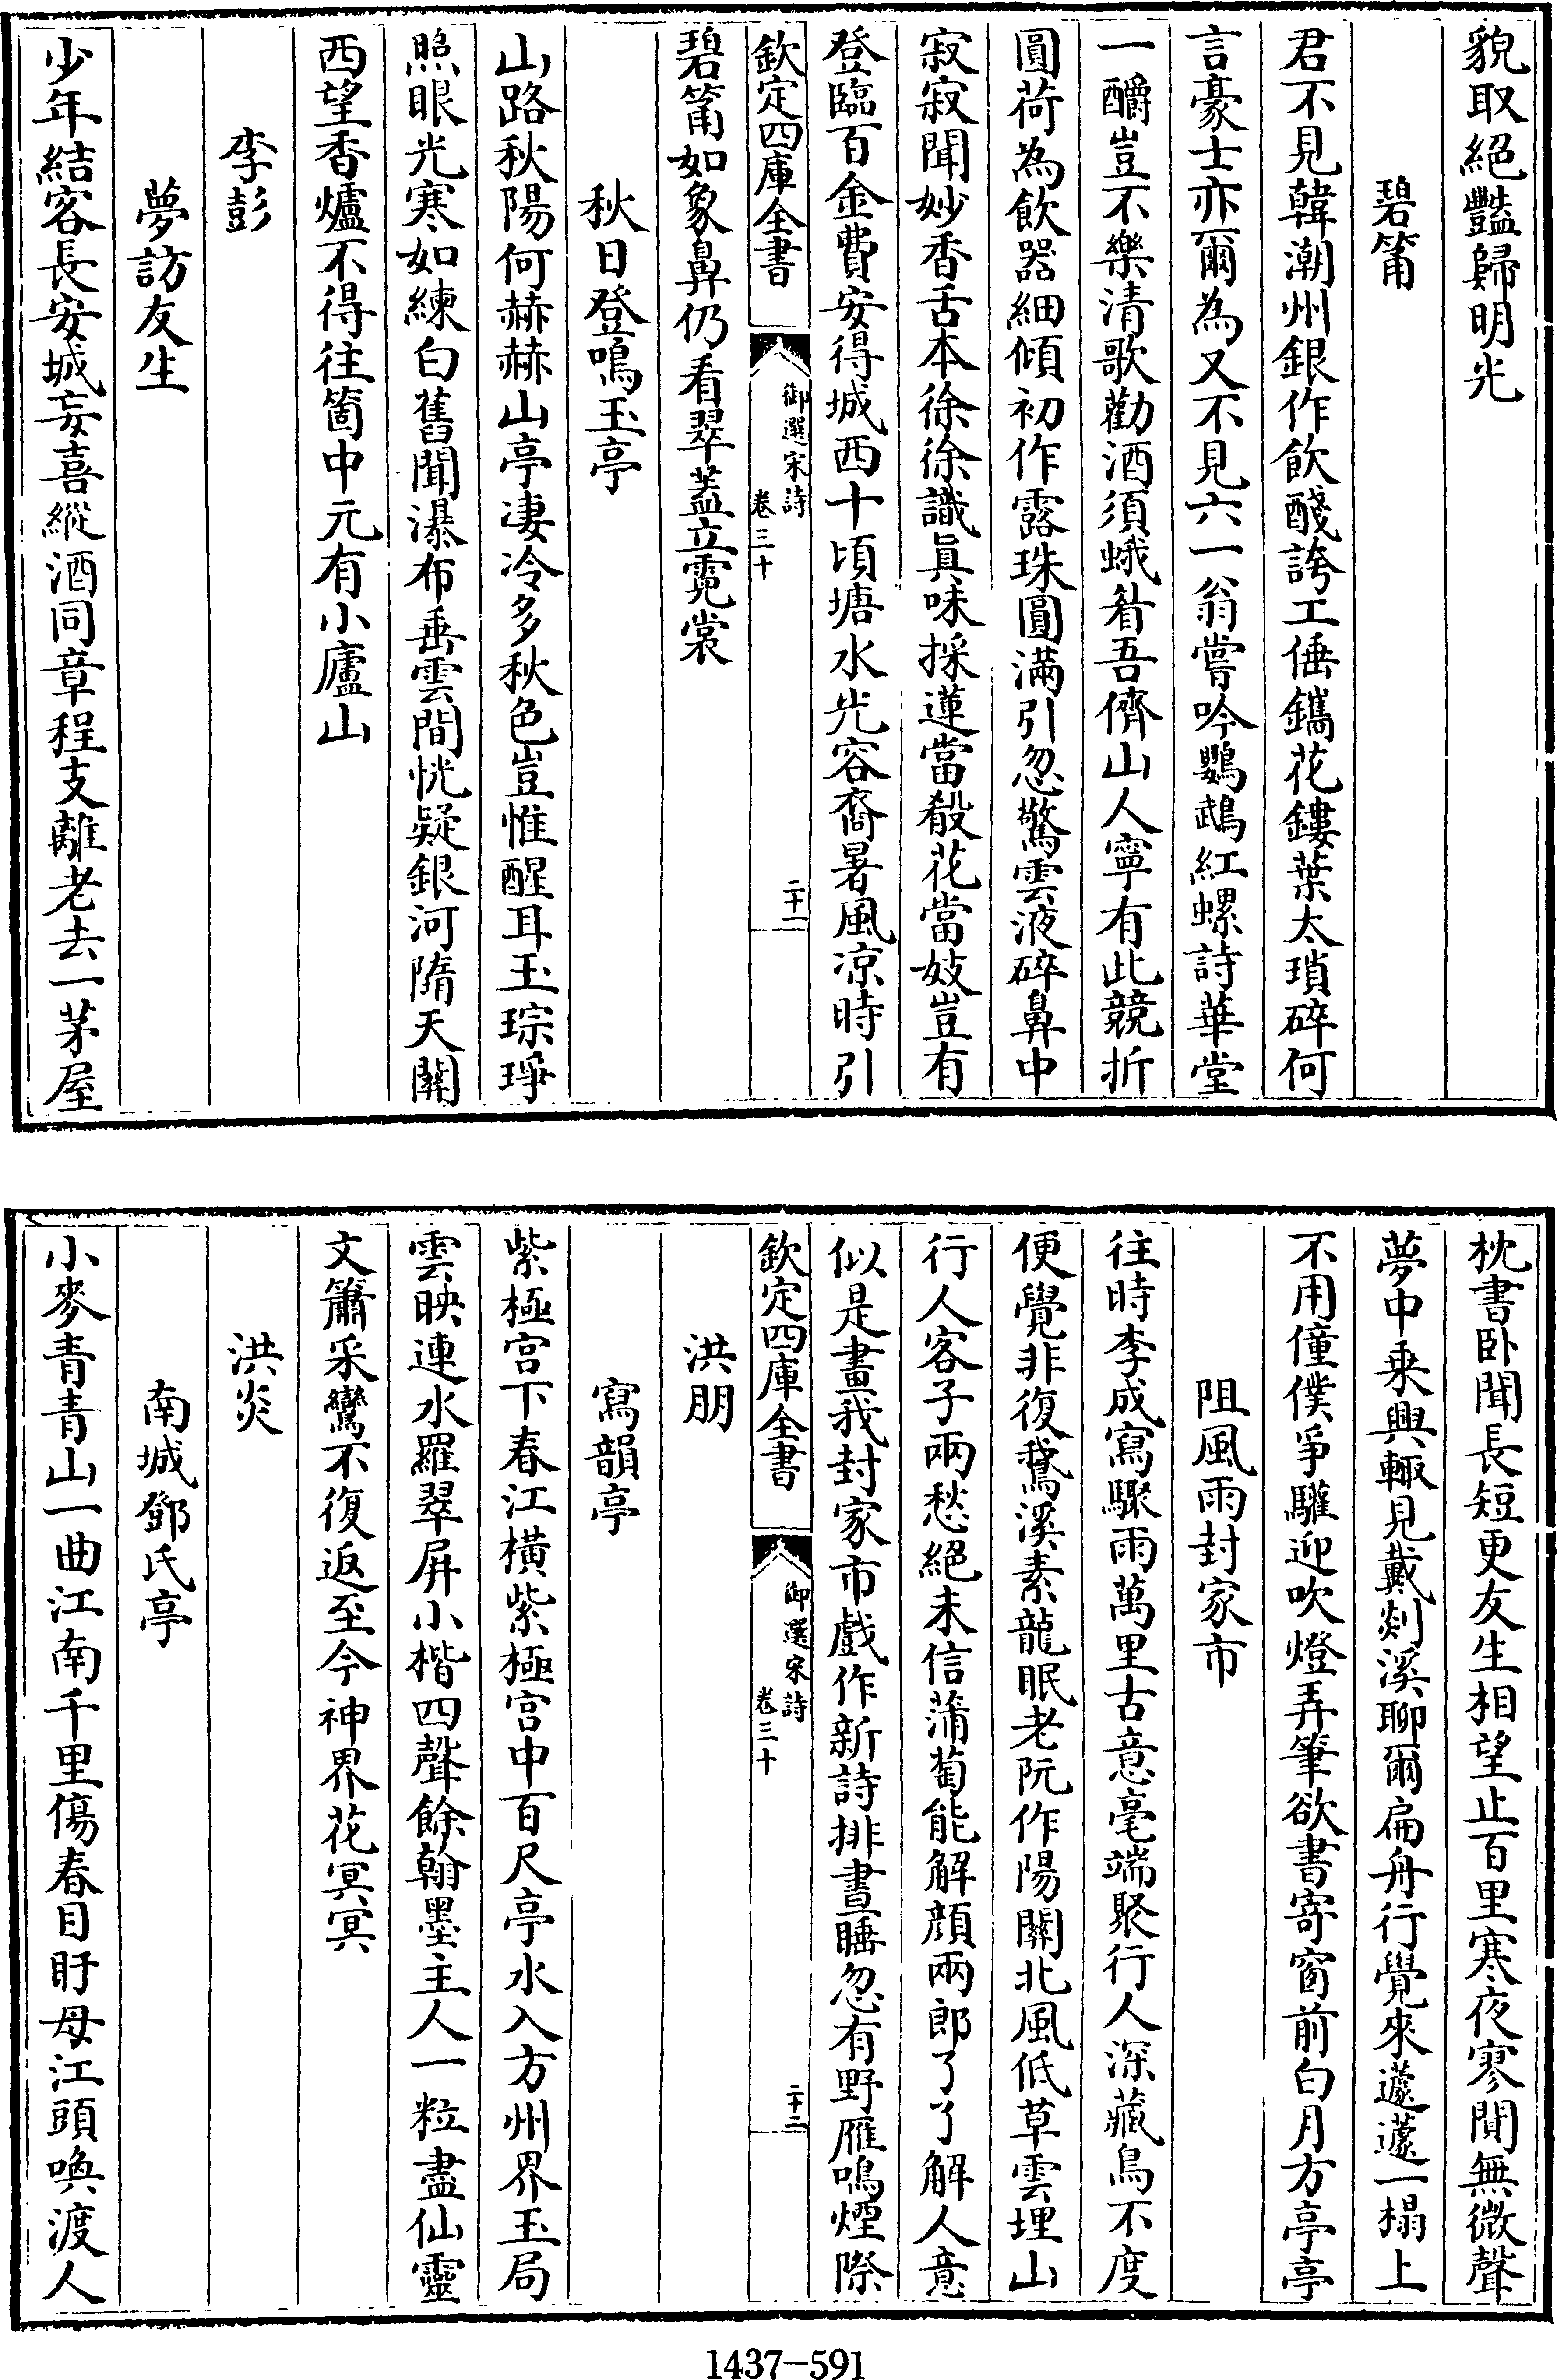 貌取絕豔歸明光
碧筩
君不見韓潮州銀作飲醆誇工倕鐫花鏤葉太瑣碎何
言豪士亦爾為又不見六一翁嘗吟鸚鵡紅螺詩華堂
一釂豈不樂清歌勸酒須蛾眉吾儕山人寧有此競折
圓荷為飲器細傾初作露珠圓滿引忽驚雲液碎鼻中
寂寂聞妙香舌本徐徐識眞味採蓮當殽花當妓豈有
登臨百金費安得城西十頃塘水光容裔暑風涼時引
欽定四庫全書
御選宋詩
卷三十
二十一
碧筩如象鼻仍看翠蓋立霓裳
秋日登鳴玉亭
山路秋陽何赫赫山亭凄冷多秋色豈惟醒耳玉琮琤
照眼光寒如練白舊聞瀑布垂雲間恍疑銀河隋天關
西望香爐不得往箇中元有小廬山
李彭
夢訪友生
少年結客長安城妄喜縱酒同章程支離老去一茅屋
枕書臥聞長短更友生相望止百里寒夜寥闃無微聲
夢中乗興輙見戴剡溪聊爾扁舟行覺來蘧蘧一榻上
不用僮僕爭驩迎吹燈弄筆欲書寄窗前白月方亭亭
阻風雨封家市
往時李成寫驟雨萬里古意毫端聚行人深藏鳥不度
便覺非復鵞溪素龍眠老阮作陽關北風低草雲埋山
行人客子兩愁絕未信蒲萄能解顏兩郎了了解人意
似是畫我封家市戲作新詩排晝睡忽有野雁鳴煙際
欽定四庫全書
御選宋詩
卷三十
二十二
洪朋
寫韻亭
紫極宮下春江橫紫極宮中百尺亭水入方州界玉局
雲映連水羅翠屏小楷四聲餘翰墨主人一粒盡仙靈
文簫采鸞不復返至今神界花冥冥
洪炎
南城鄧氏亭
小麥青青山一曲江南千里傷春目盱母江頭喚渡人
1437-591